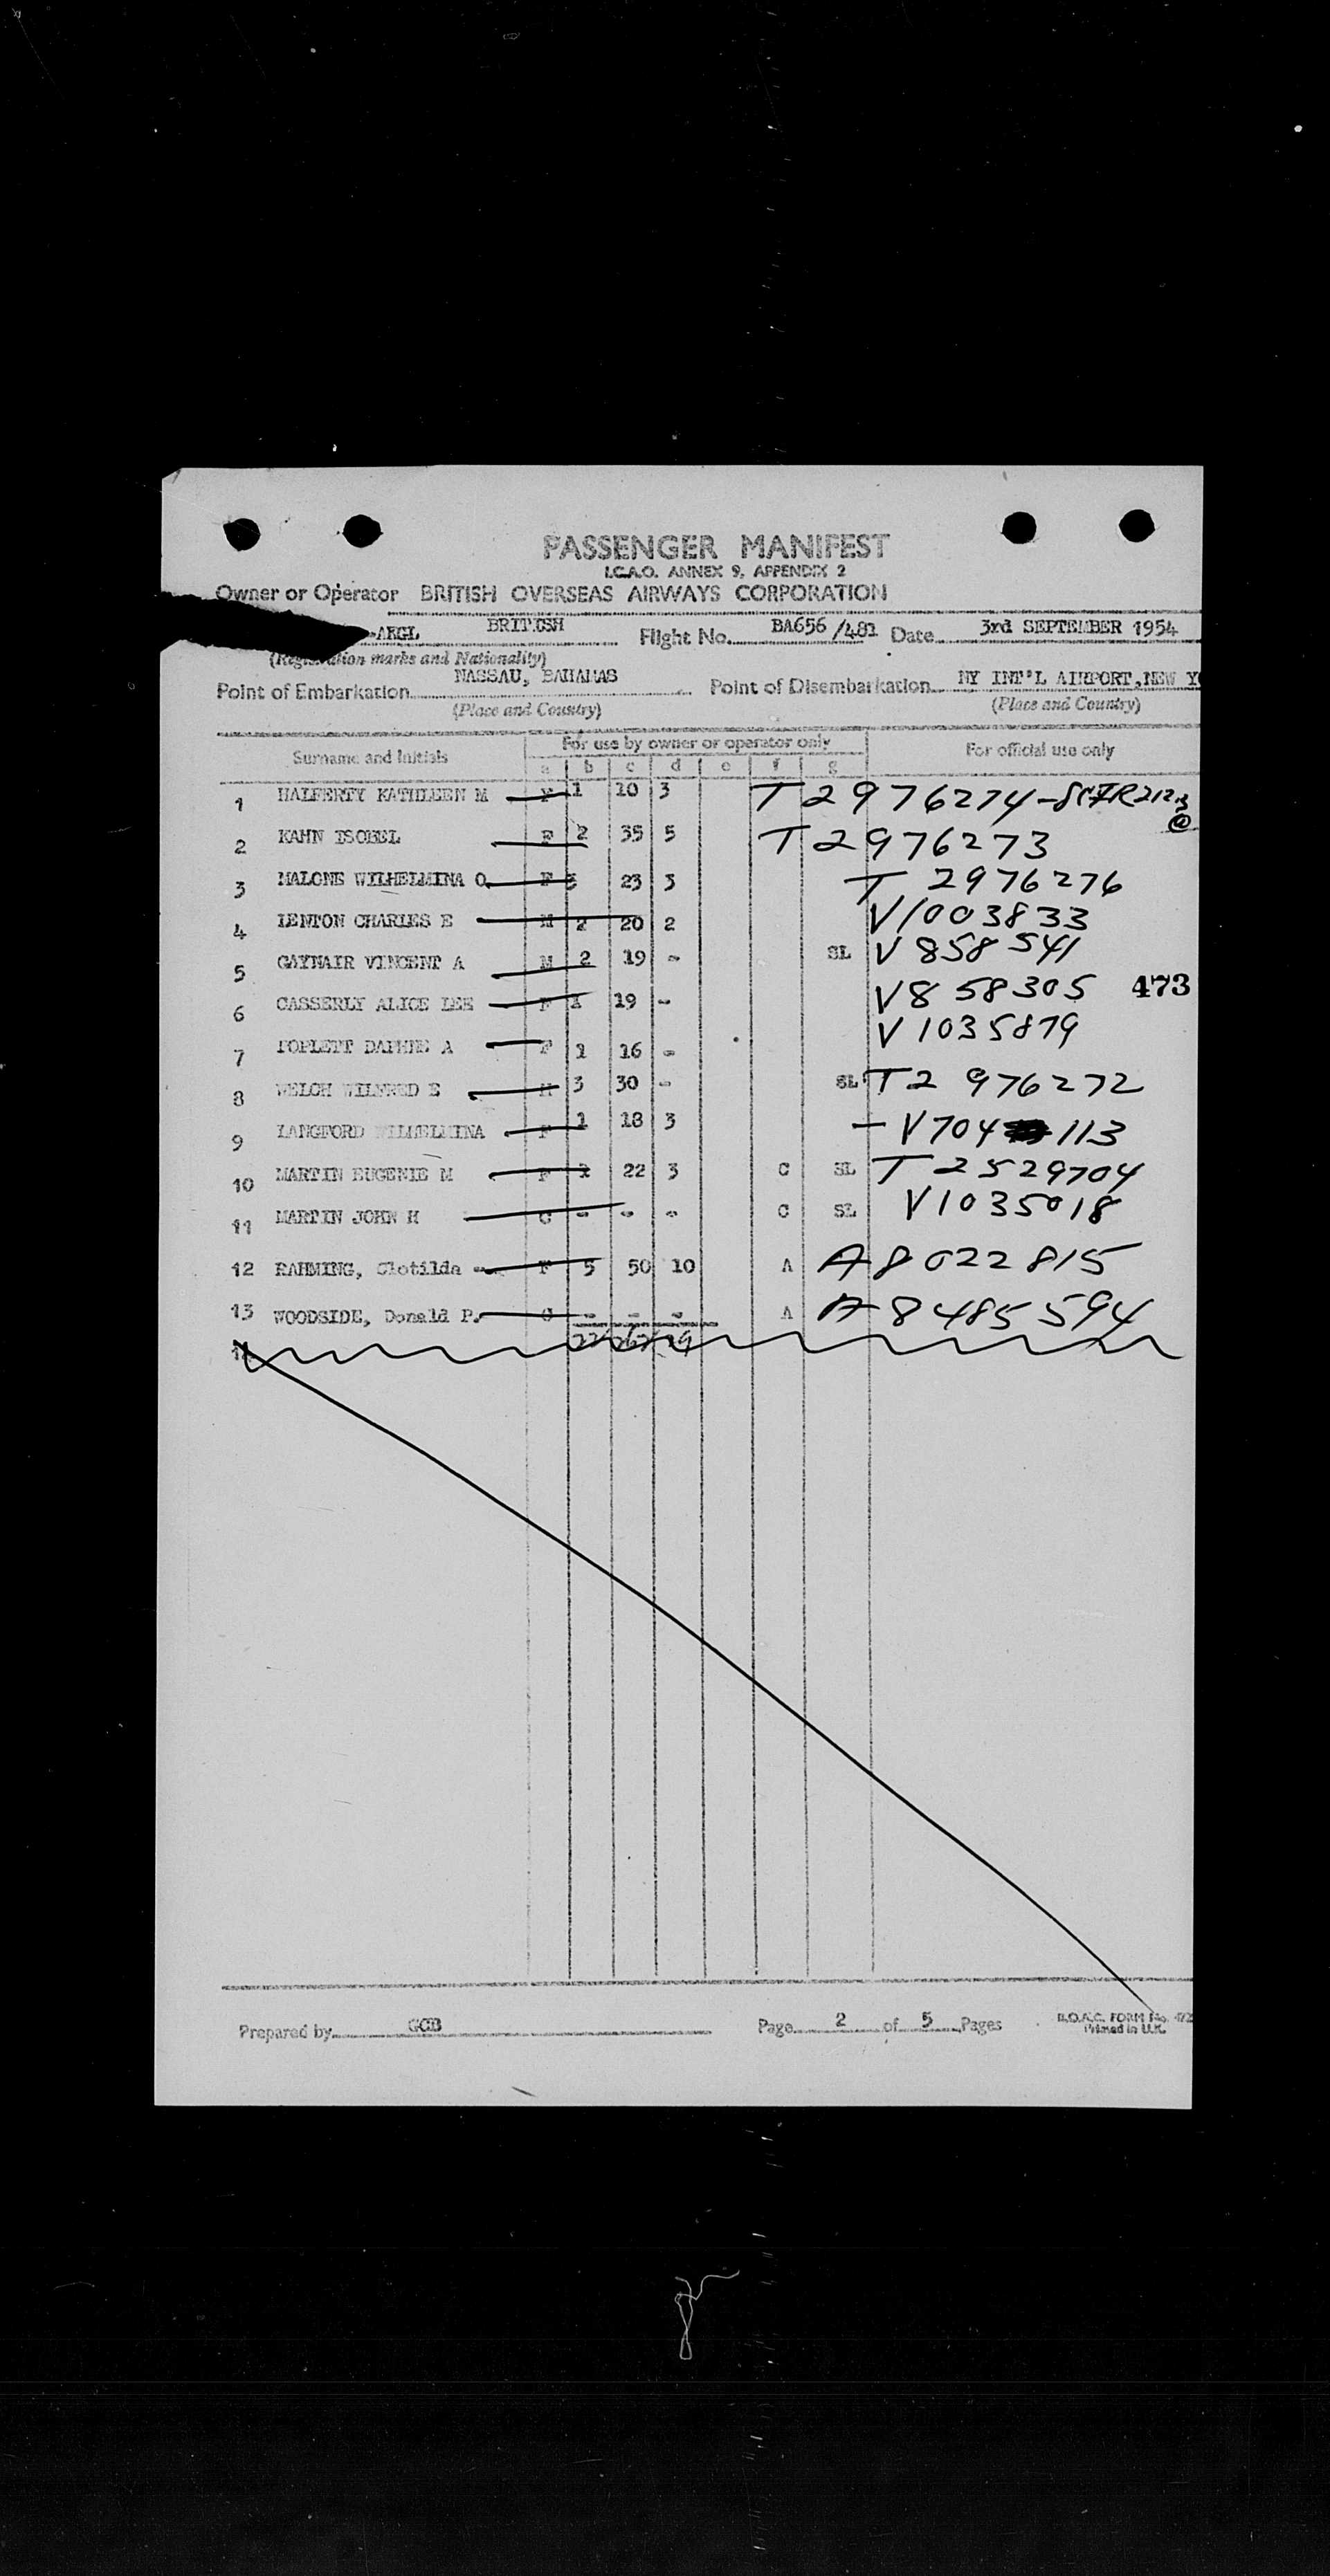 PASSENGER MANIFEST
I.C.A.O. ANNEX 9, APPENDIX 2
Owner or Operator BRITISH OVERSEAS AIRWAYS CORPORATION
BRITISH Flight No. BA656 /481 Date 3rd SEPTEMBER 1954
(Registration marks and Nationality)
Point of Embarkation NASSAU, BAHAMAS Point of Disembarkation NY INT'L AIRPORT, NEW Y
(Place and Country) (Place and Country)
Surname and Initials For use by owner or operator only For official use only
a b c d e f g
1 HALFERTY KATHLEEN M F 1 10 3 T 2976274
2 KAHN ISOBEL F 2 35 5 T 2976273
3 MALONE WILHELMINA O F 3 23 3 T 2976276
4 LENTON CHARLES E M 2 20 2 V1003833
5 GAYNAIR VINCENT A M 2 19 - SL V 858541
6 CASSERLY ALICE LEE F 1 19 - V858305 473
7 DAPHNE A F 1 16 - V1035879
8 WELCH WILFRED E M 3 30 - SL T2 976272
9 LANGFORD WILHELMINA F 1 18 3 - V704 113
10 MARTIN EUGENIE M F 1 22 3 C SL T 2529704
11 MARTIN JOHN H C - - - C SL V1035018
12 RAHMING, Clotilda F 5 50 10 A A8022815
13 WOODSIDE, Donald P. C - - - A A8485594
14
Prepared by GCB Page 2 of 5 Pages B.O.A.C. FORM No.
Printed in U.K.